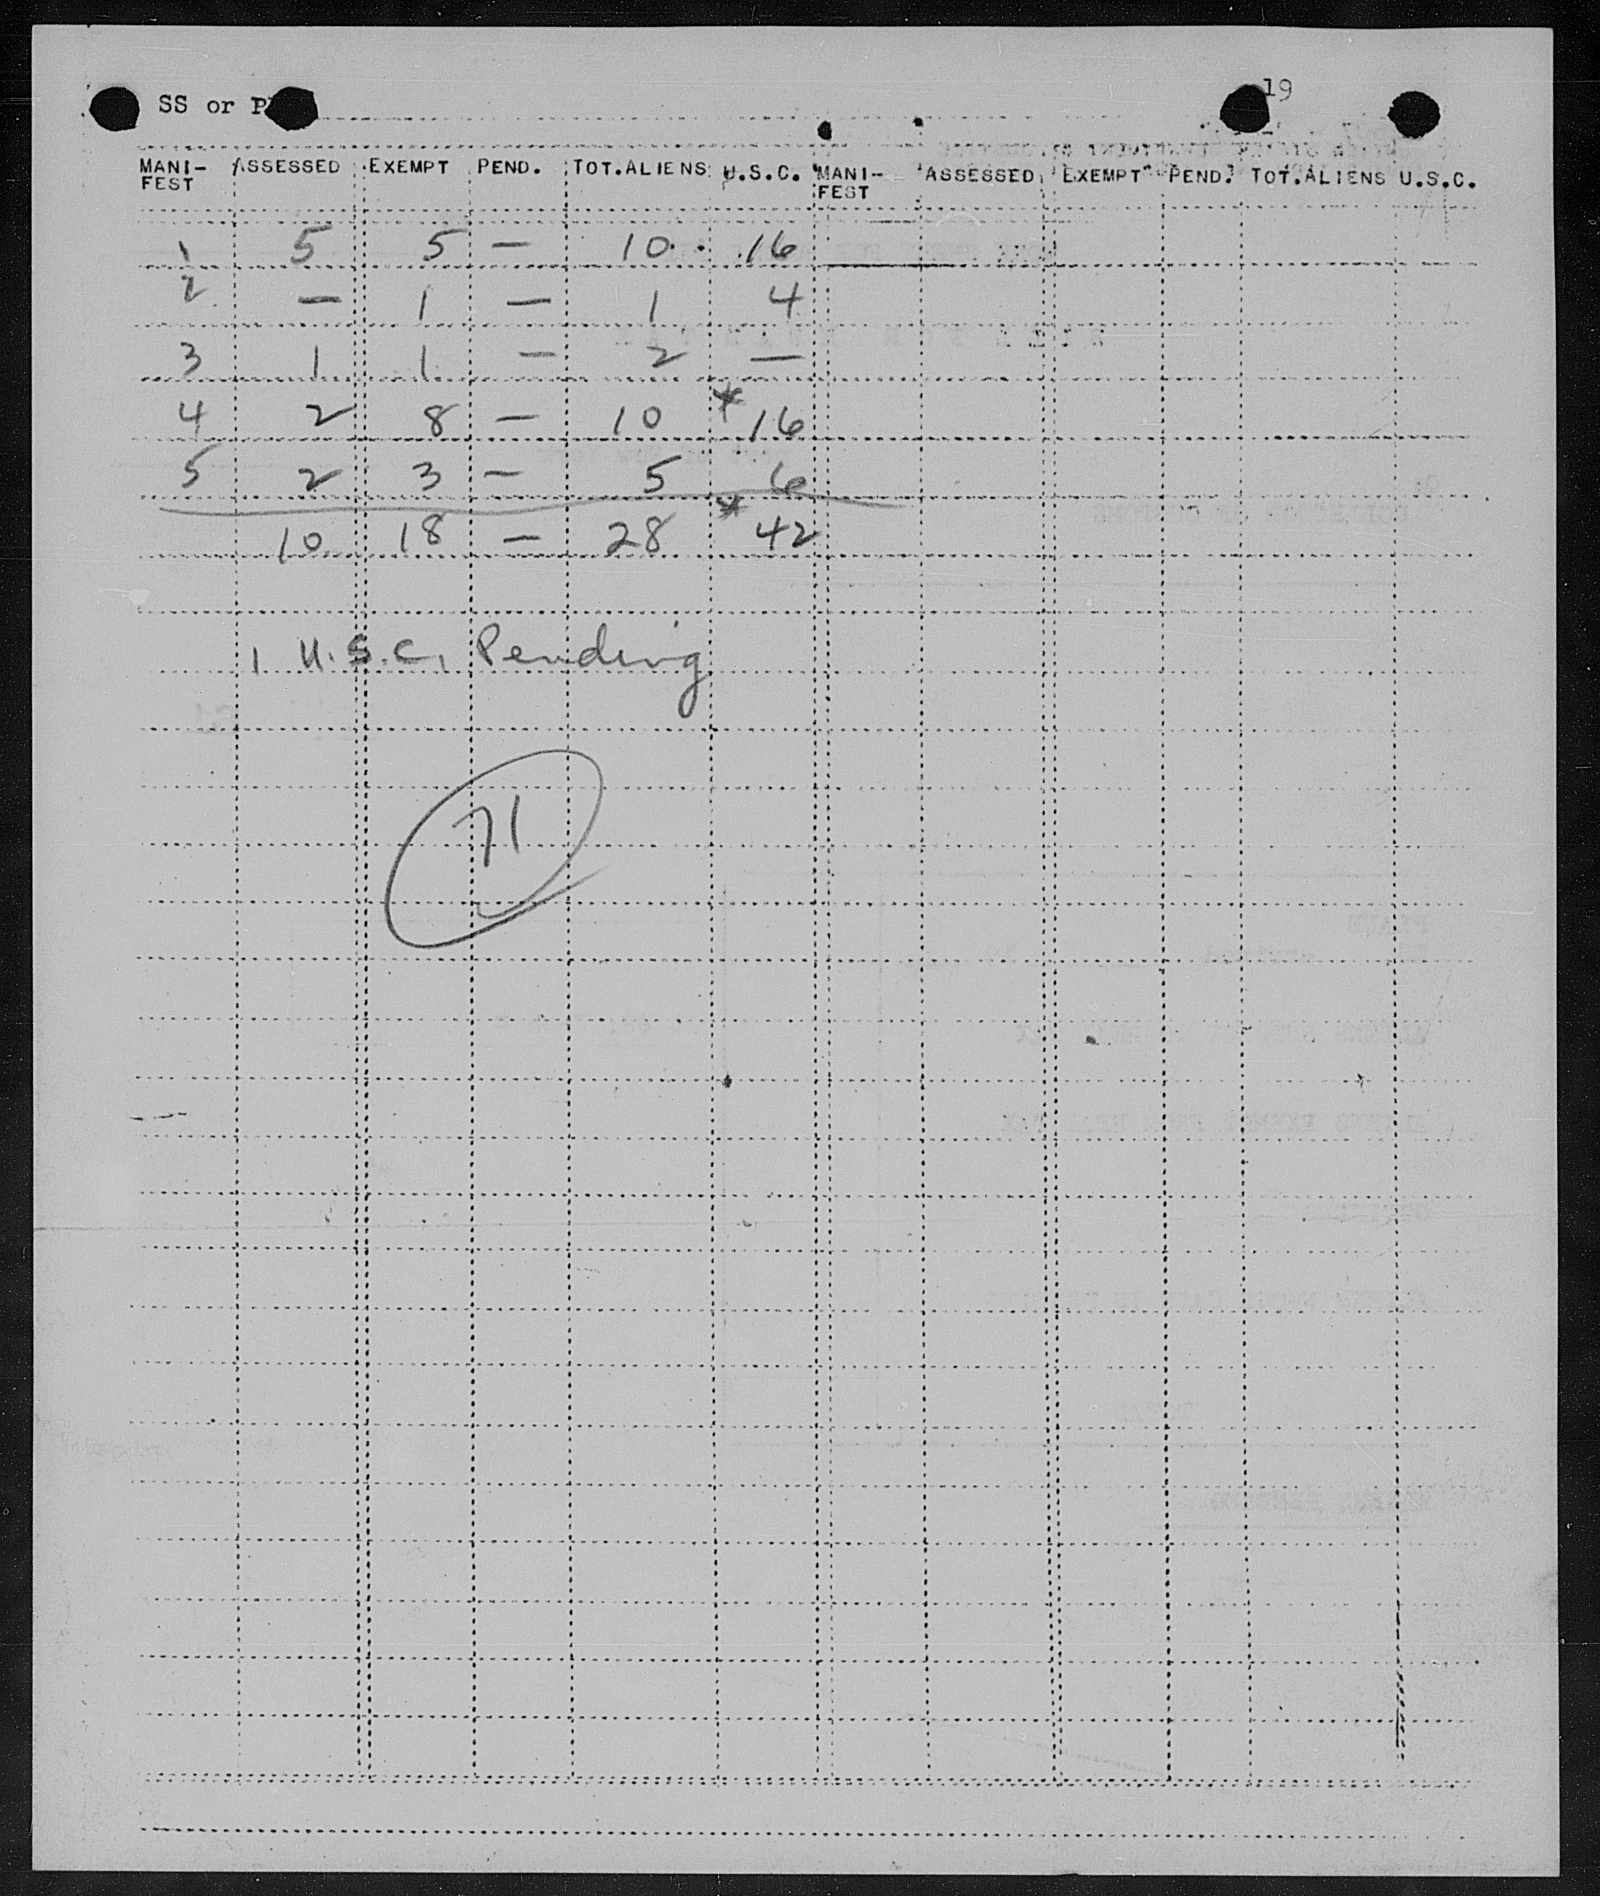 SS or P
19
MANI-FEST ASSESSED EXEMPT PEND. TOT. ALIENS U.S.C. MANI-FEST ASSESSED EXEMPT PEND. TOT. ALIENS U.S.C.
1 5 5 — 10 16
2 — 1 — 1 4
3 1 1 — 2 —
4 2 8 — 10 * 16
5 2 3 — 5 6
10 18 — 28 * 42
1 U.S.C. Pending
71